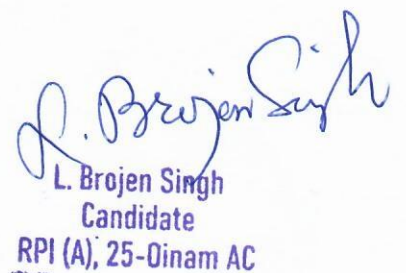 L. Brojen Singh
L. Brojen Singh
Candidate
RPI (A), 25-Oinam AC